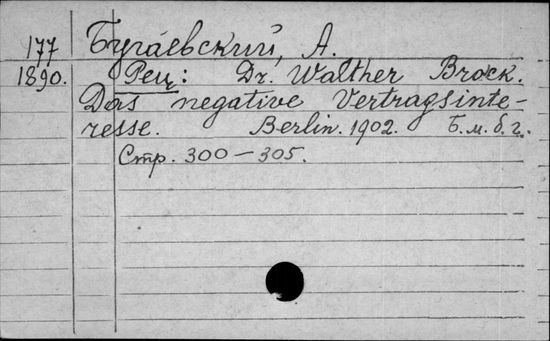 177 Бугаевский, А.
1890. Рец: Dr. Walther Brock.
Das negative Vertragsinte-
resse. Berlin. 1902. Б. м. б. г.
Стр. 300 — 305.